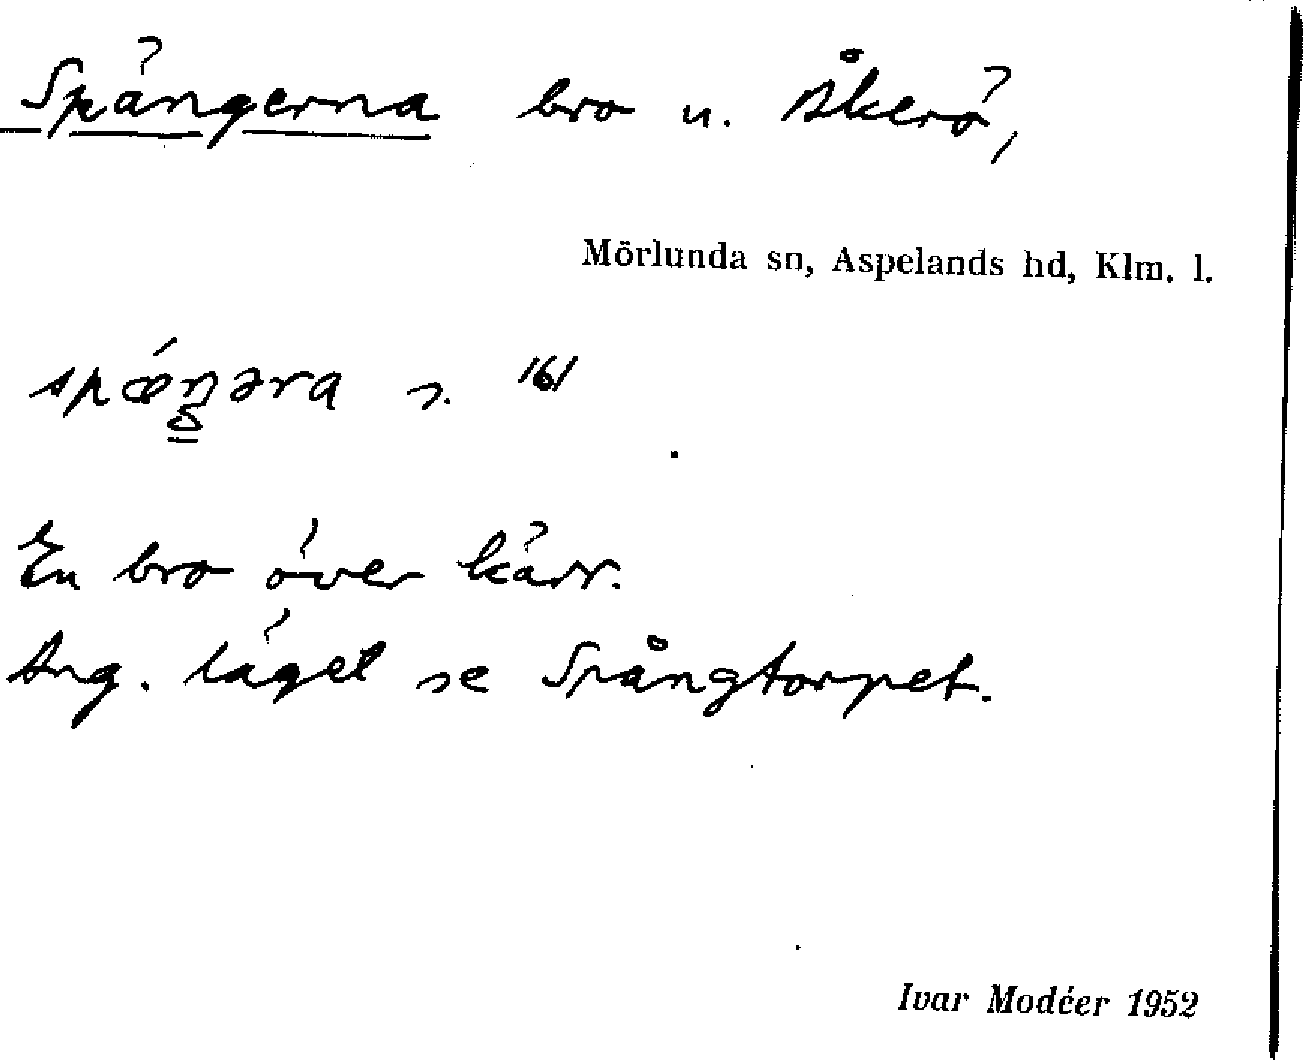 Spängerna bro u. Åkerö,
Mörlunda sn, Aspelands hd, Klm. l.
En bro över kärr.
Ang. läget se Spångtorpet.
Ivar Modéer 1952